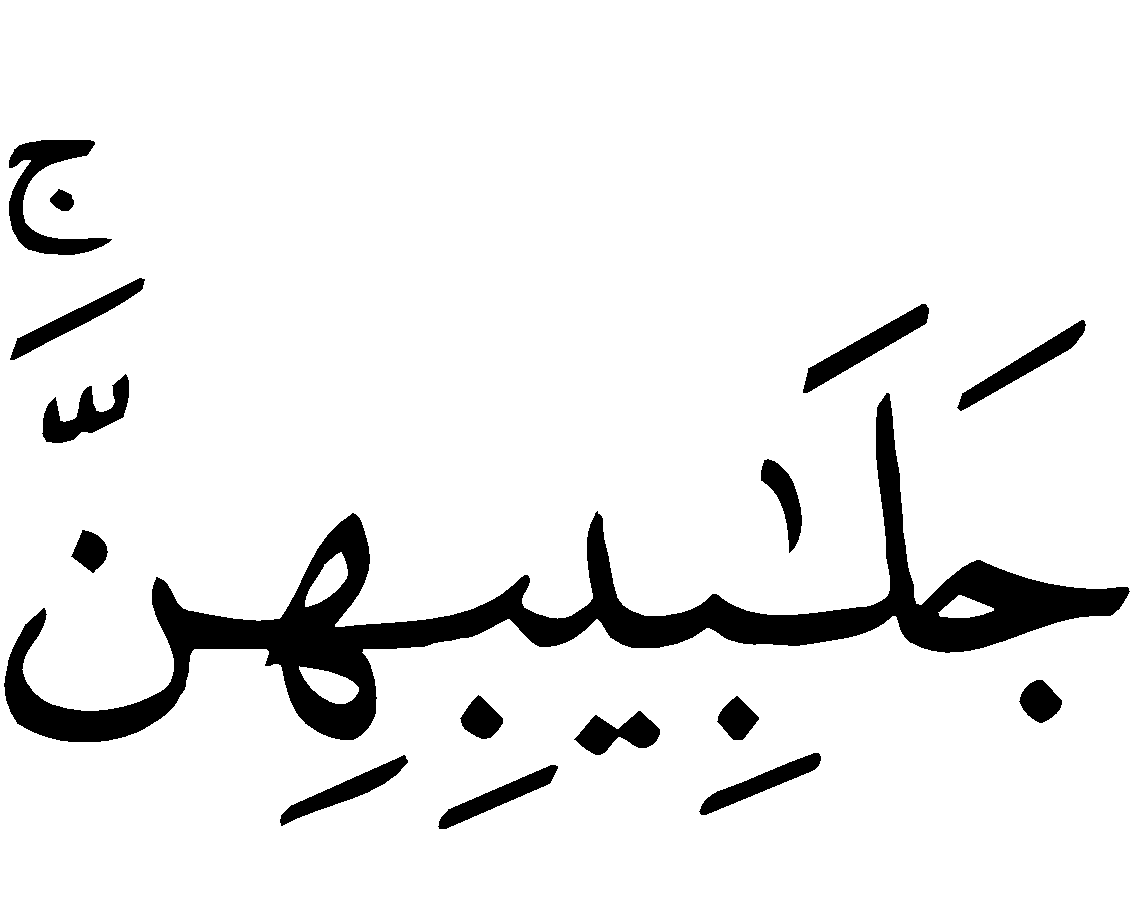 جَلَـٰبِيبِهِنَّ ۚ